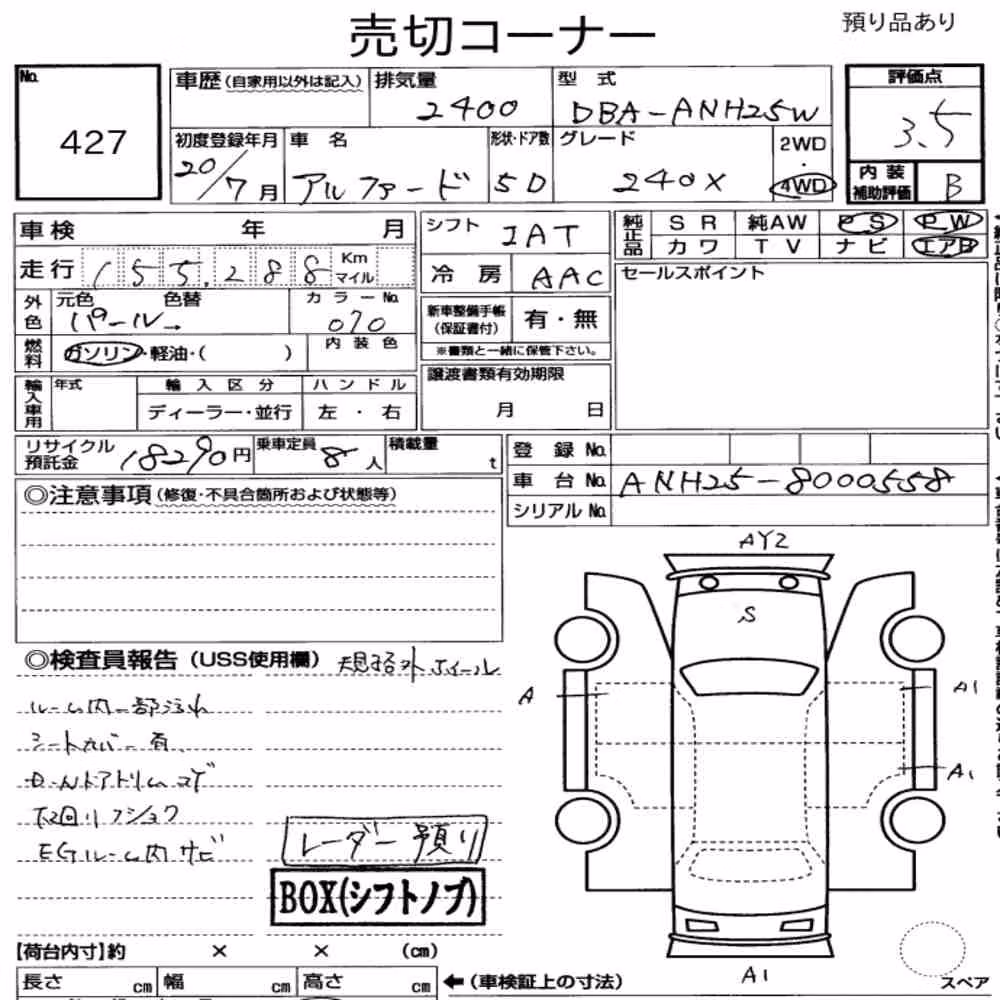 売切コーナー
預り品あり
No.
427
車歴(自家用以外は記入)
排気量
2400
型 式
DBA-ANH25W
評価点
3.5
初度登録年月
20/7月
車 名
アルファード
形状・ドア数
5D
グレード
240X
2WD
・
4WD
内 装
補助評価
B
車検 年 月
走行 155,288 Km
マイル
シフト IAT
冷 房 AAC
純正品
SR 純AW PS PW
カワ TV ナビ エアB
セールスポイント
外色
元色 色替
パール→
カラーNo.
070
燃料
ガソリン・軽油・( )
内装色
新車整備手帳
(保証書付)
有・無
※書類と一緒に保管下さい。
輸入車用
年式
輸入区分
ディーラー・並行
ハンドル
左 ・ 右
譲渡書類有効期限
月 日
リサイクル
預託金
18290円
乗車定員
8人
積載量
t
登 録 No.
車 台 No. ANH25-8000558
シリアル No.
◎注意事項(修復・不具合箇所および状態等)
◎検査員報告(USS使用欄) 規格外ホイール
ルーム内一部汚れ
シートカバー有
下回りフショク
EGルーム内サビ
レーダー預り
BOX(シフトノブ)
AY2
S
A
A1
A1
A1
スペア
【荷台内寸】約 × × (cm)
長さ cm 幅 cm 高さ cm
←(車検証上の寸法)